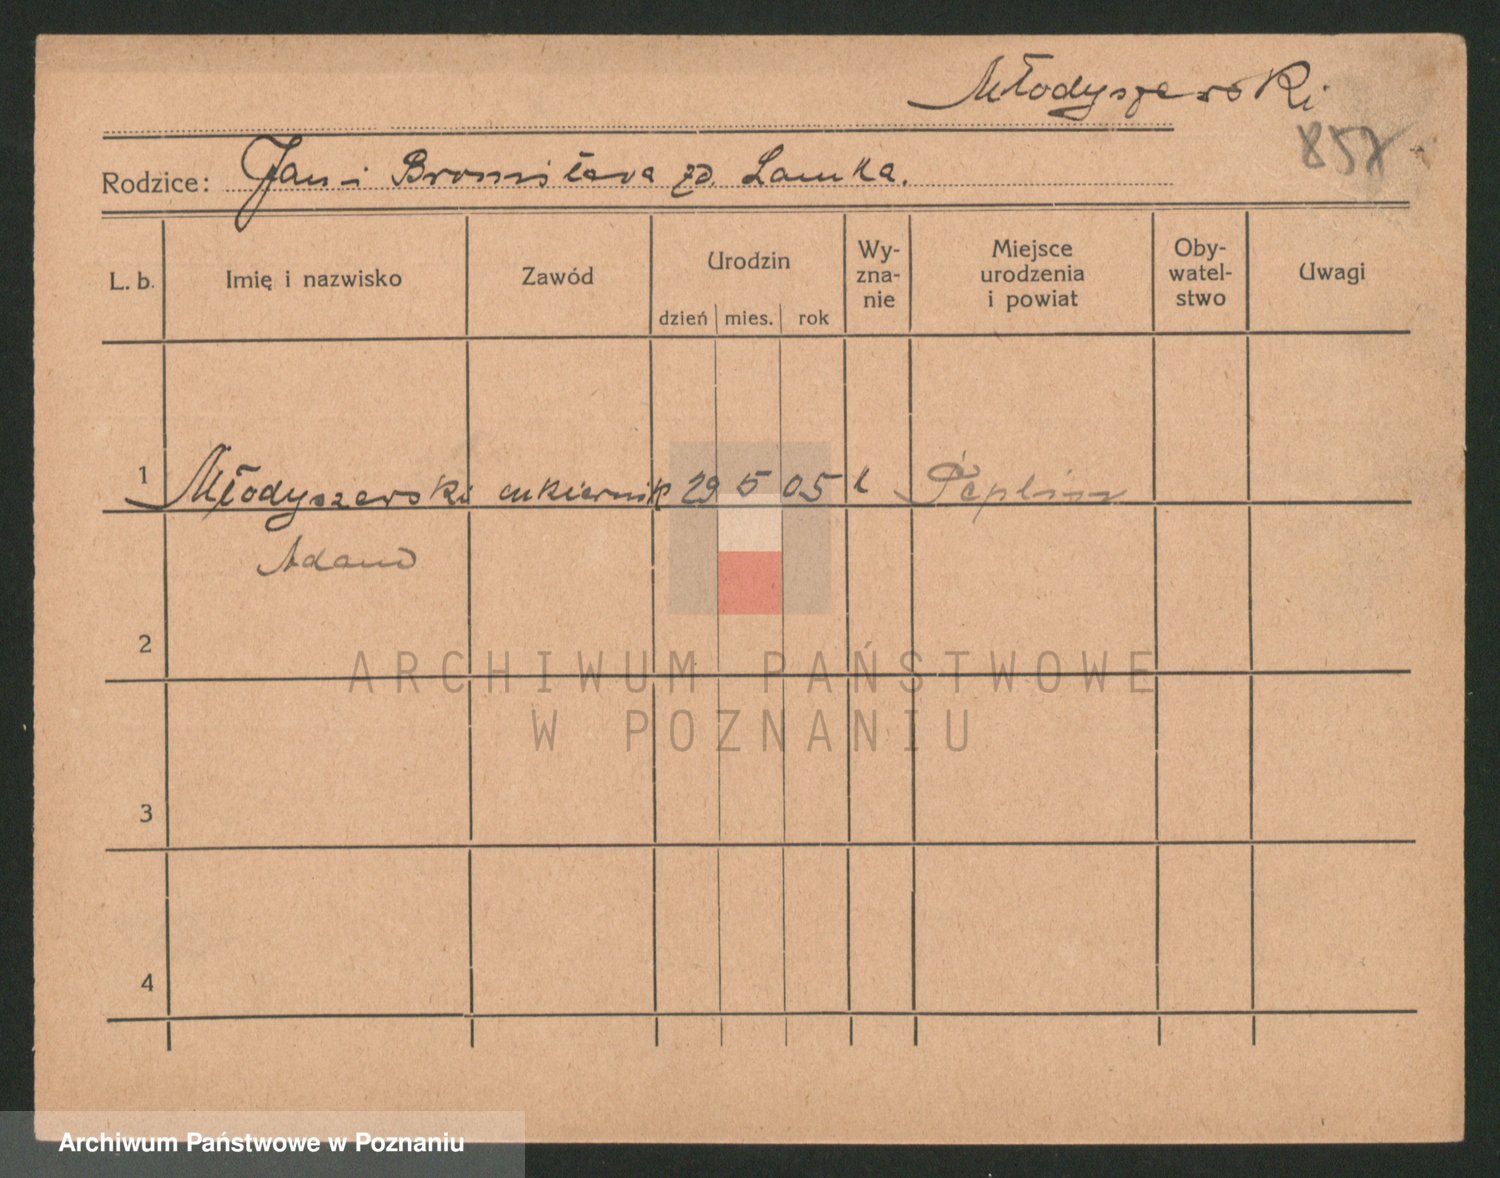 Młodyszewski
857
Rodzice: Jan i Bronisława zd. Lamka.
L. b. Imię i nazwisko Zawód Urodzin Wy-zna-nie Miejsce urodzenia i powiat Oby-watel-stwo Uwagi
dzień mies. rok
1 Młodyszewski cukiernik 29 5 05 k Peplin
Adam
2
ARCHIWUM PAŃSTWOWE
W POZNANIU
3
4
Archiwum Państwowe w Poznaniu